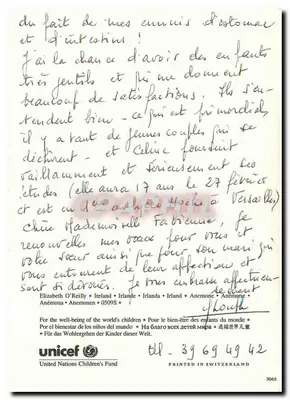 du fait de mes ennuis d'estomac
et d'intestins !
J'ai la chance d'avoir des enfants
très gentils et qui me donnent
beaucoup de satisfactions. Ils s'en-
tendent bien - ce qui est primordial
il y a tant de jeunes couples qui se
déchirent - et Céline poursuit
vaillamment et sérieusement ses
études (elle aura 17 ans le 27 février
et est en à Versailles)
Chère Mademoiselle Fabienne, je
renouvelle mes vœux pour vous et
votre sœur ainsi que pour son mari qui
vous entourent de leur affection et
sont si dévoués. Je vous embrasse affectueu-
sement
Elizabeth O'Reilly • Ireland • Irlande • Irlanda • Irland • Anemone • Anémone •
Anémona • Anemonen • 0509S •
For the well-being of the world's children • Pour le bien-être des enfants du monde •
Por el bienestar de los niños del mundo • На благо всех детей мира • 造福世界儿童
• Für das Wohlergehen der Kinder dieser Welt.
unicef
United Nations Children's Fund
tél - 39 69 49 42
PRINTED IN SWITZERLAND